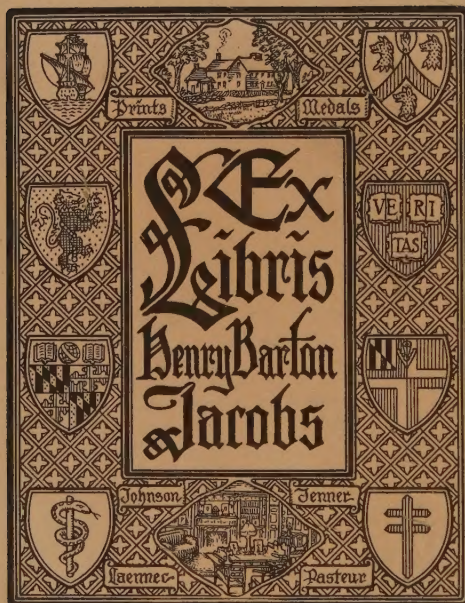 Prints Medals
Ex
Libris
VE RI
TAS
Henry Barton
Jacobs
Johnson Jenner
Laennec Pasteur